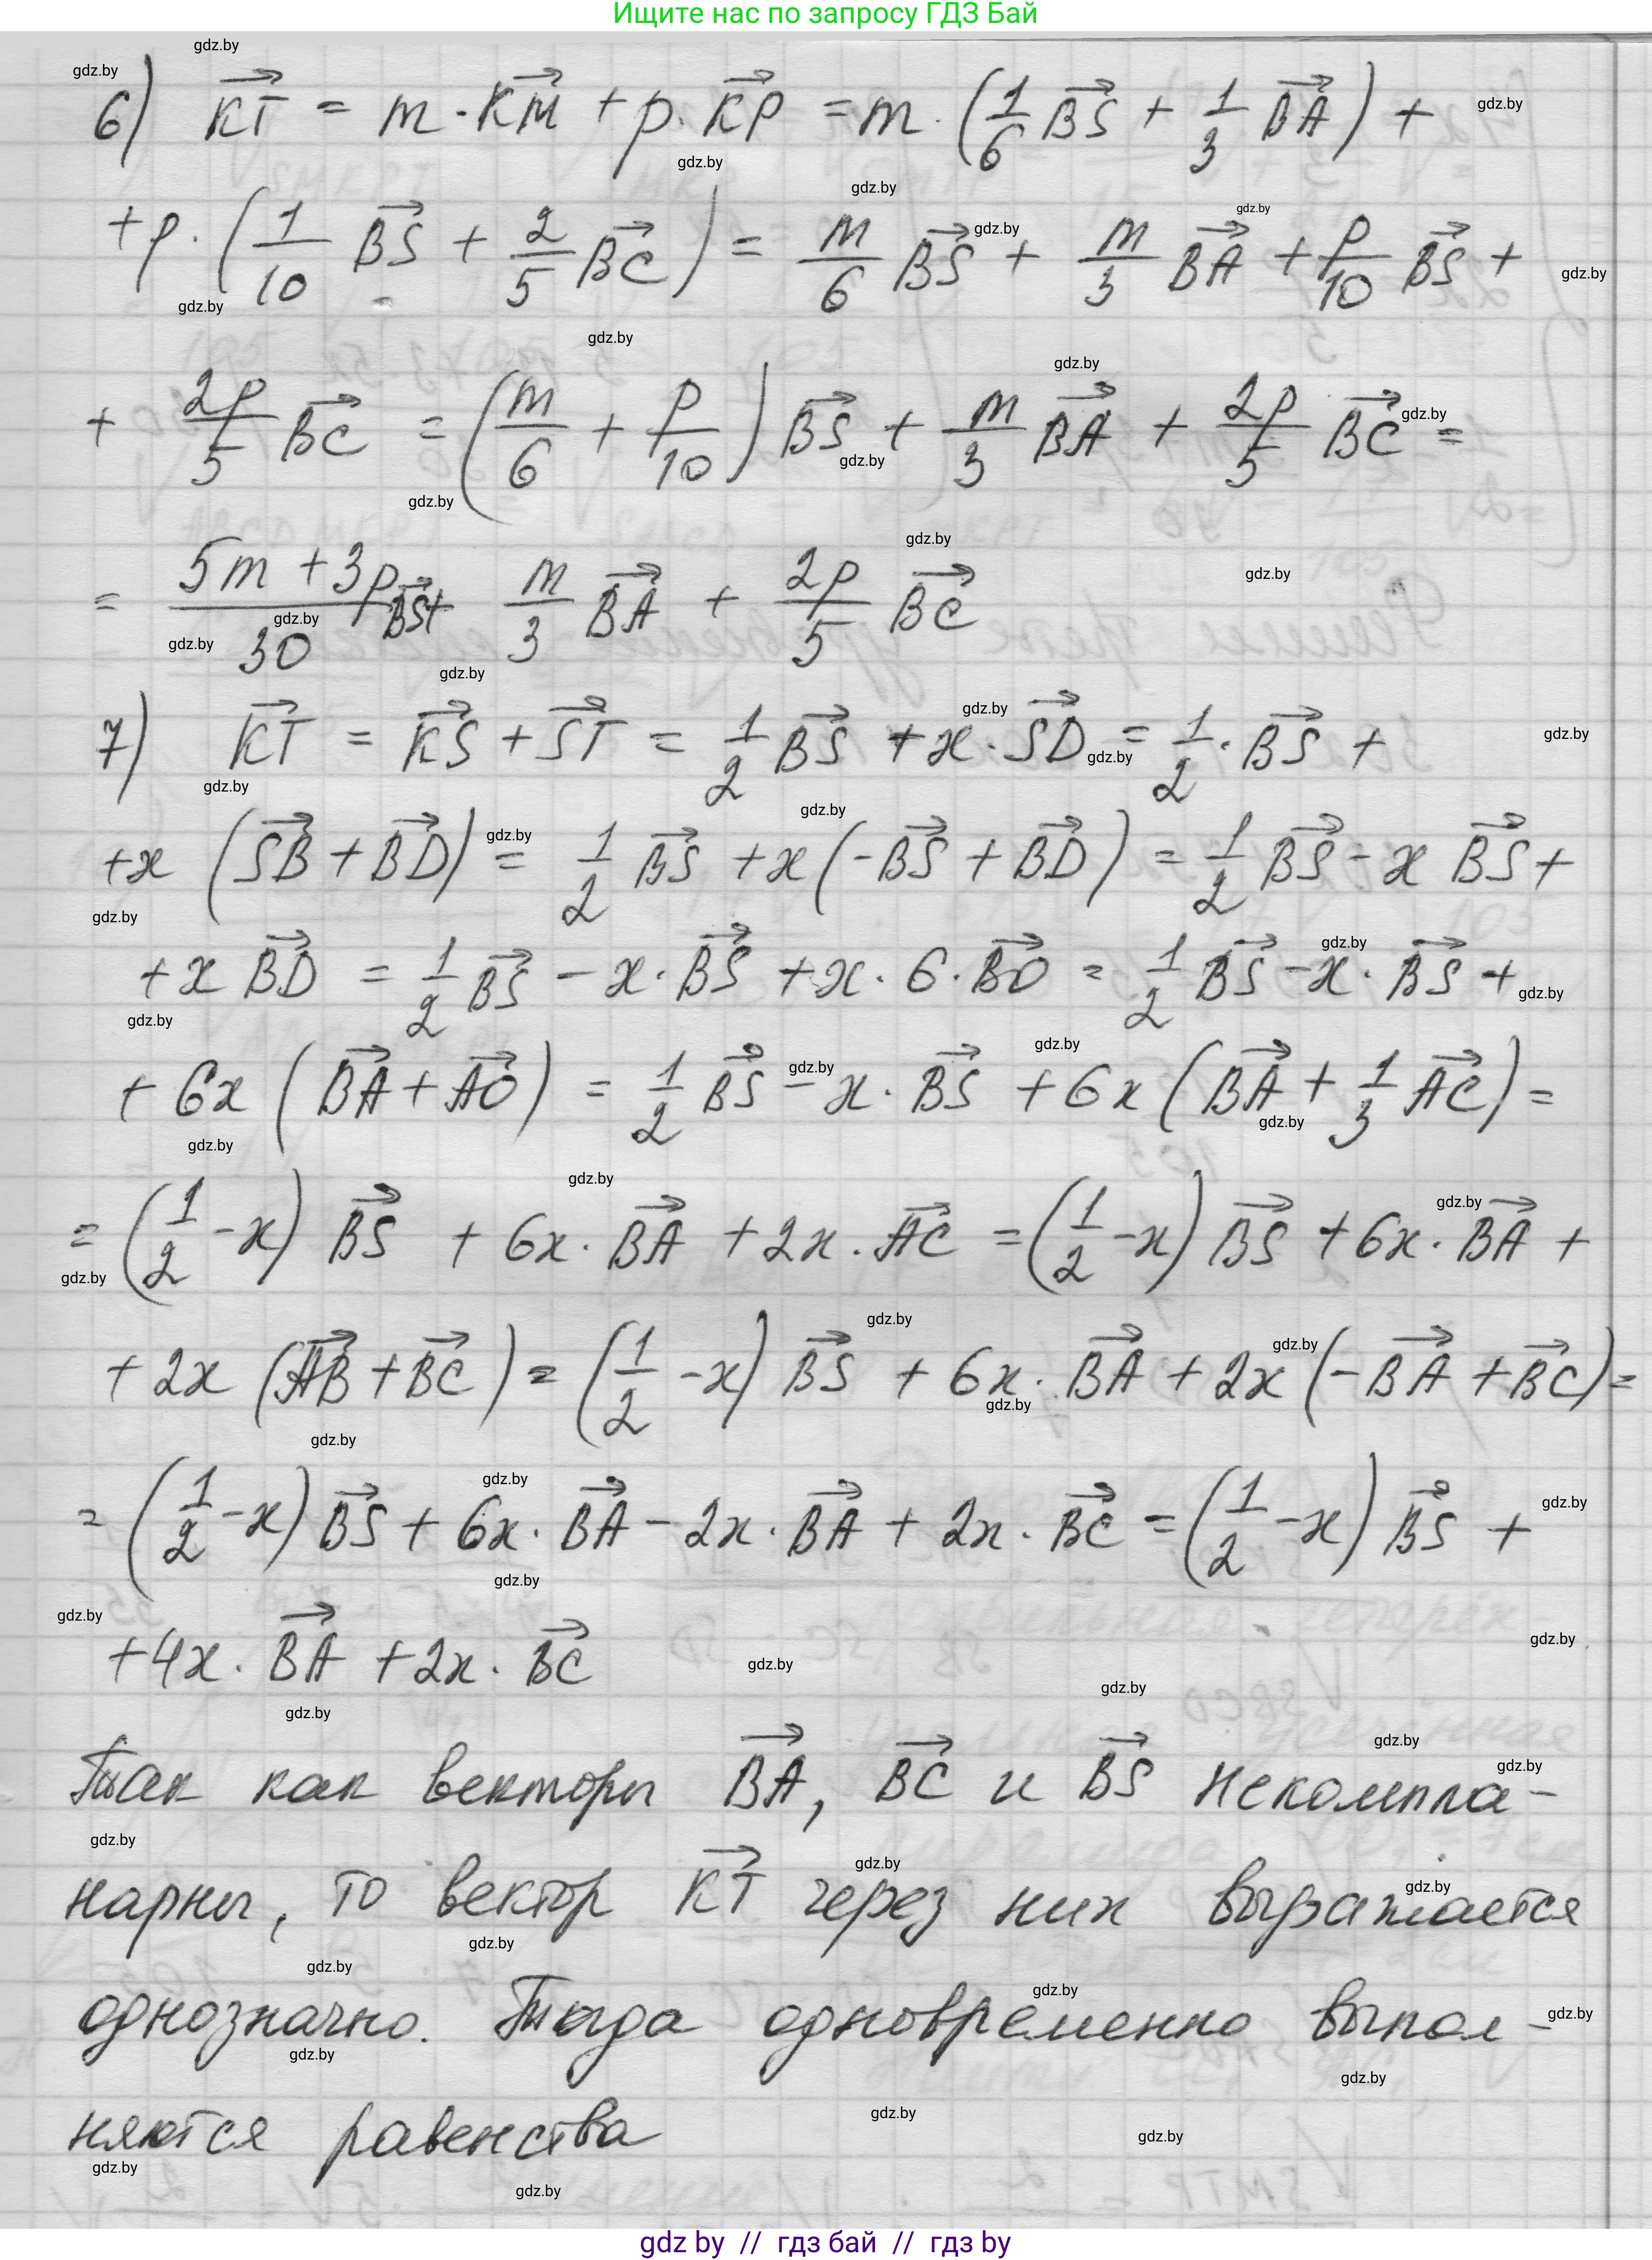 Ищите нас по запросу ГДЗ Бай
6) KT→ = m · KM→ + p · KP→ = m · (1/6 BS→ + 1/3 BA→) +
+ p · (1/10 BS→ + 2/5 BC→) = m/6 BS→ + m/3 BA→ + p/10 BS→ +
+ 2p/5 BC→ = (m/6 + p/10) BS→ + m/3 BA→ + 2p/5 BC→ =
= (5m + 3p)/30 BS→ + m/3 BA→ + 2p/5 BC→
7) KT→ = KS→ + ST→ = 1/2 BS→ + x · SD→ = 1/2 · BS→ +
+ x (SB→ + BD→) = 1/2 BS→ + x (-BS→ + BD→) = 1/2 BS→ - x BS→ +
+ x BD→ = 1/2 BS→ - x · BS→ + x · 6 · BO→ = 1/2 BS→ - x · BS→ +
+ 6x (BA→ + AO→) = 1/2 BS→ - x · BS→ + 6x (BA→ + 1/3 AC→) =
= (1/2 - x) BS→ + 6x · BA→ + 2x · AC→ = (1/2 - x) BS→ + 6x · BA→ +
+ 2x (AB→ + BC→) = (1/2 - x) BS→ + 6x · BA→ + 2x (-BA→ + BC→) =
= (1/2 - x) BS→ + 6x · BA→ - 2x · BA→ + 2x · BC→ = (1/2 - x) BS→ +
+ 4x · BA→ + 2x · BC→
Так как векторы BA→, BC→ и BS→ некомпла-
нарны, то вектор KT→ через них выражается
однозначно. Тогда одновременно выпол-
няются равенства
gdz by // гдз бай // гдз by